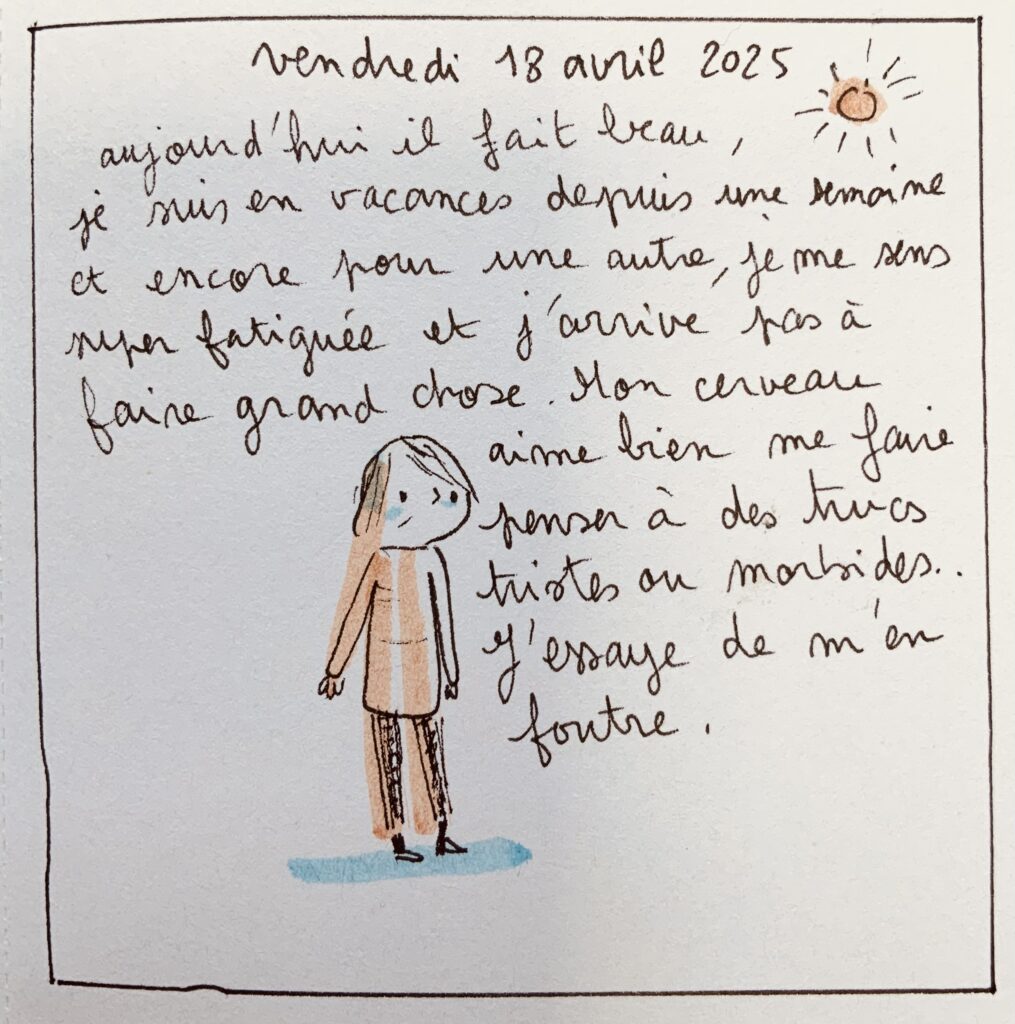 vendredi 18 avril 2025
aujourd'hui il fait beau,
je suis en vacances depuis une semaine
et encore pour une autre, je me sens
super fatiguée et j'arrive pas à
faire grand chose. Mon cerveau
aime bien me faire
penser à des trucs
tristes ou morbides..
J'essaye de m'en
foutre.